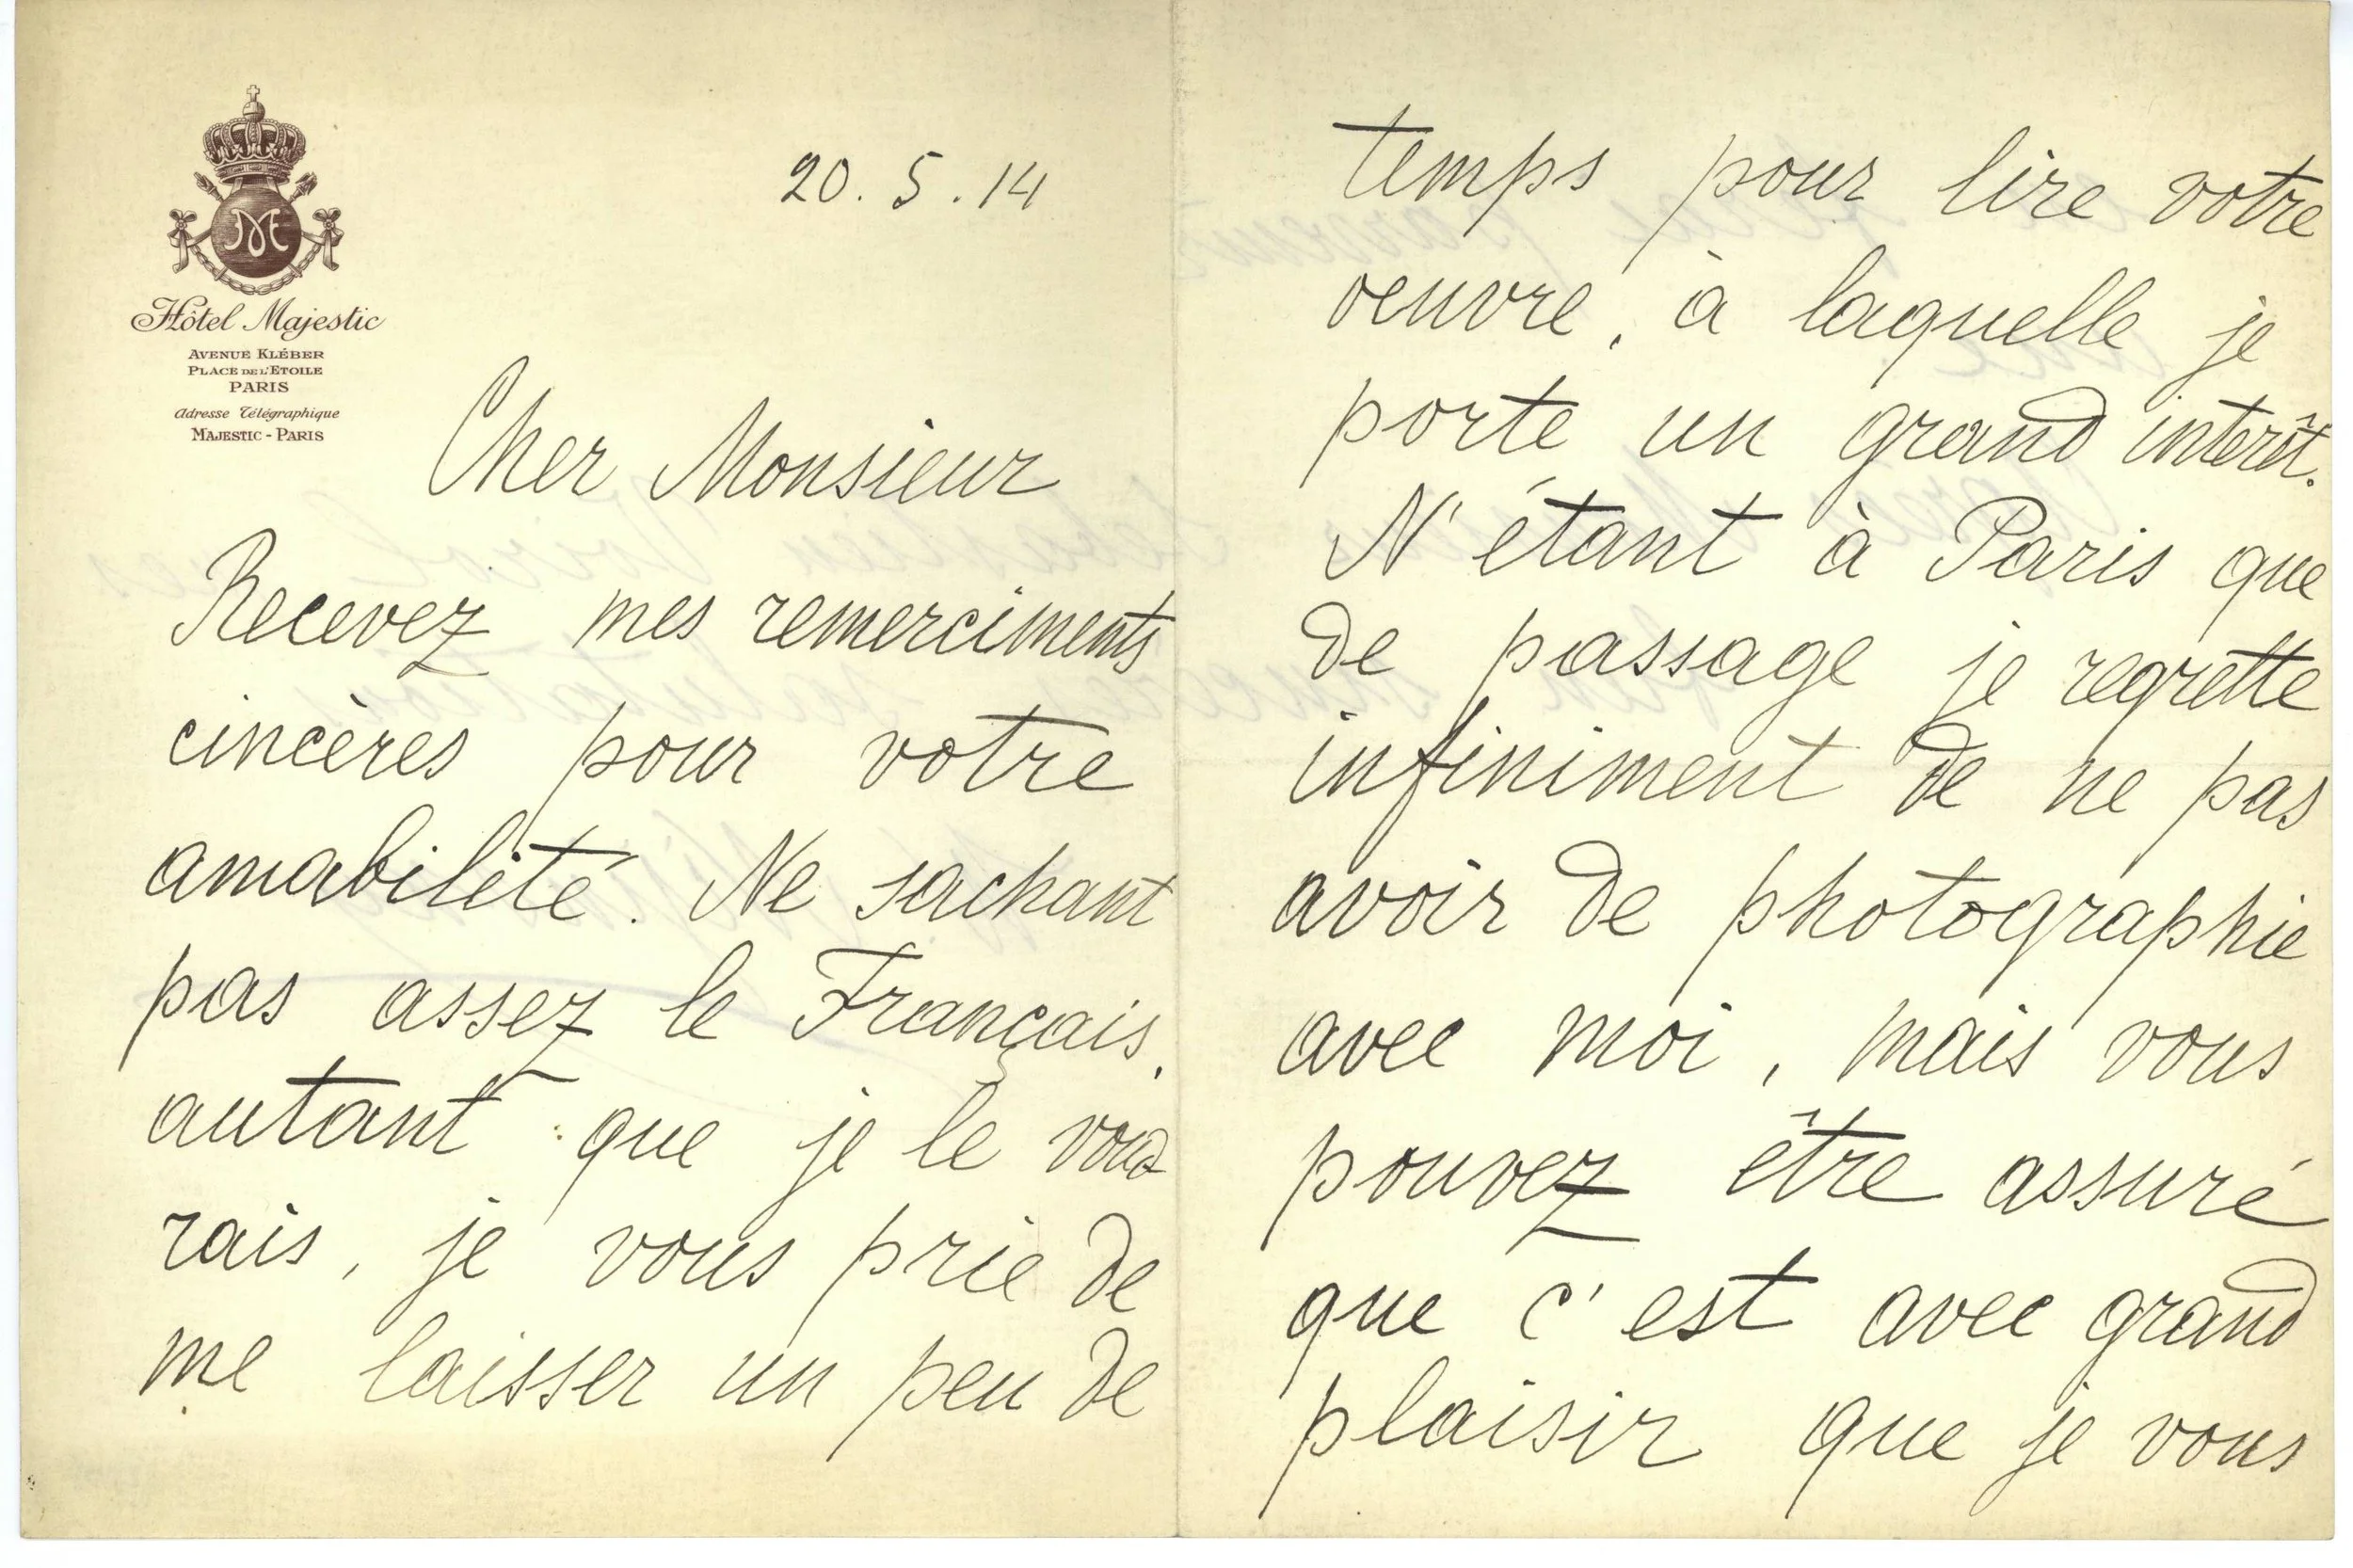 Hôtel Majestic
AVENUE KLÉBER
PLACE DE L'ETOILE
PARIS
Adresse Télégraphique
MAJESTIC - PARIS
20. 5. 14
Cher Monsieur
Recevez mes remerciments
cincères pour votre
amabilité. Ne sachant
pas assez le Français,
autant que je le voud
rais, je vous prie de
me laisser un peu de
temps pour lire votre
oeuvre, à laquelle je
porte un grand interêt.
N'étant à Paris que
de passage je regrette
infiniment de ne pas
avoir de photographie
avec moi, mais vous
pouvez être assuré
que c'est avec grand
plaisir que je vous